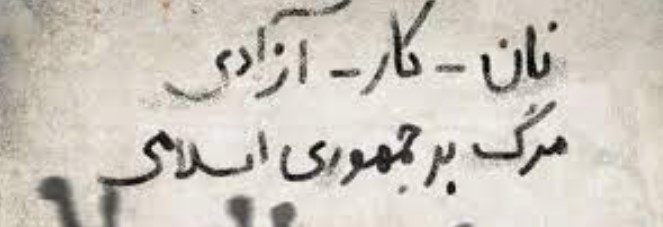 نان - کار - آزادی
مرگ بر جمهوری اسلامی